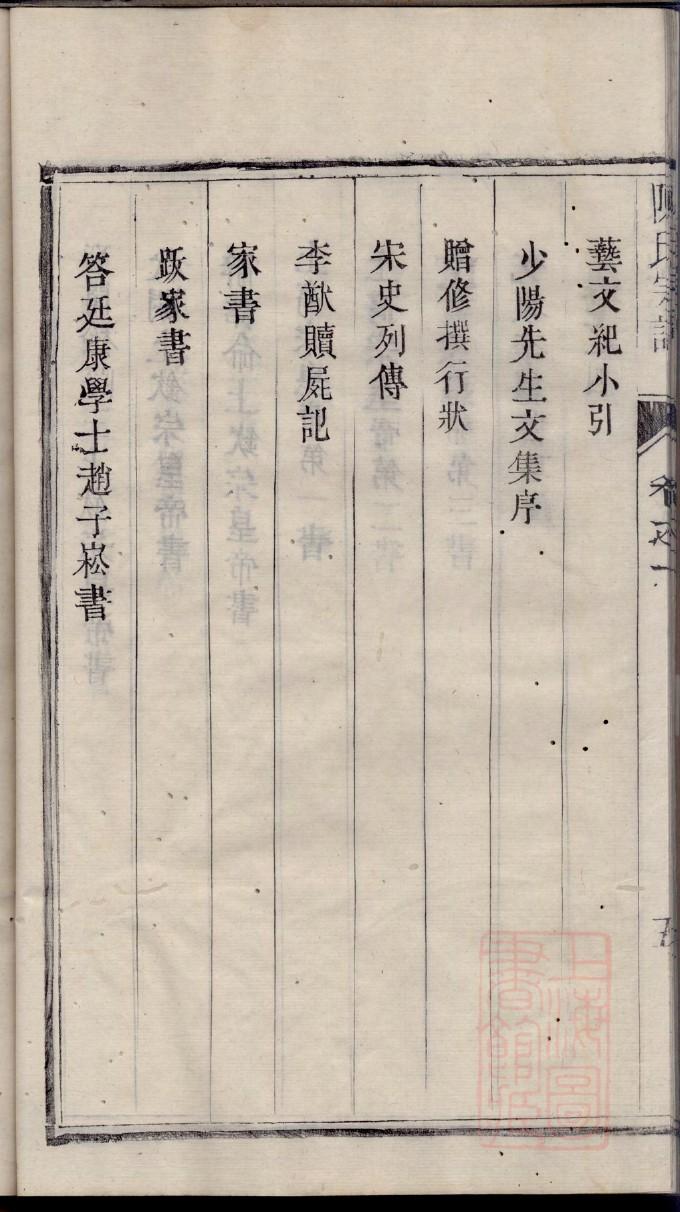 陳氏宗譜
卷之一
五
藝文紀小引
少陽先生文集序
贈修撰行狀
宋史列傳
李猷贖屍記
家書
跋家書
答廷康學士趙子崧書
上海圖
書館藏